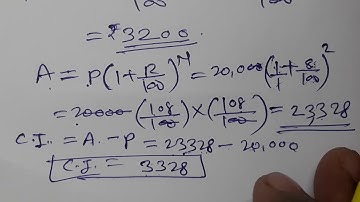 = ₹3200.
A = P(1+R/100)^N = 20,000(1/1+8/100)^2
= 20000(108/100)×(108/100) = 23328
C.I. = A - P = 23328 - 20,000
C.I. = 3328